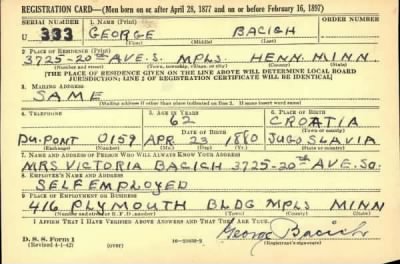 REGISTRATION CARD—(Men born on or after April 28, 1877 and on or before February 16, 1897)
SERIAL NUMBER 1. NAME (Print) ORDER NUMBER
U 333 GEORGE BACICH
(First) (Middle) (Last)
2. PLACE OF RESIDENCE (Print)
3725-20th AVE. S. MPLS. HENN. MINN.
(Number and street) (Town, township, village, or city) (County) (State)
[THE PLACE OF RESIDENCE GIVEN ON THE LINE ABOVE WILL DETERMINE LOCAL BOARD
JURISDICTION; LINE 2 OF REGISTRATION CERTIFICATE WILL BE IDENTICAL]
3. MAILING ADDRESS
SAME
[Mailing address if other than place indicated on line 2. If same insert word same]
4. TELEPHONE 5. AGE IN YEARS 6. PLACE OF BIRTH
62 CROATIA
DATE OF BIRTH (Town or county)
DU. PONT 0159 APR 23 1880 JUGOSLAVIA
(Exchange) (Number) (Mo.) (Day) (Yr.) (State or country)
7. NAME AND ADDRESS OF PERSON WHO WILL ALWAYS KNOW YOUR ADDRESS
MRS VICTORIA BACICH 3725-20th AVE. SO.
8. EMPLOYER'S NAME AND ADDRESS
SELF EMPLOYED
9. PLACE OF EMPLOYMENT OR BUSINESS
416 PLYMOUTH BLDG MPLS MINN
(Number and street or R. F. D. number) (Town) (County) (State)
I AFFIRM THAT I HAVE VERIFIED ABOVE ANSWERS AND THAT THEY ARE TRUE.
D. S. S. Form 1
(Revised 4-1-42) (over) George Bacich
(Registrant's signature)